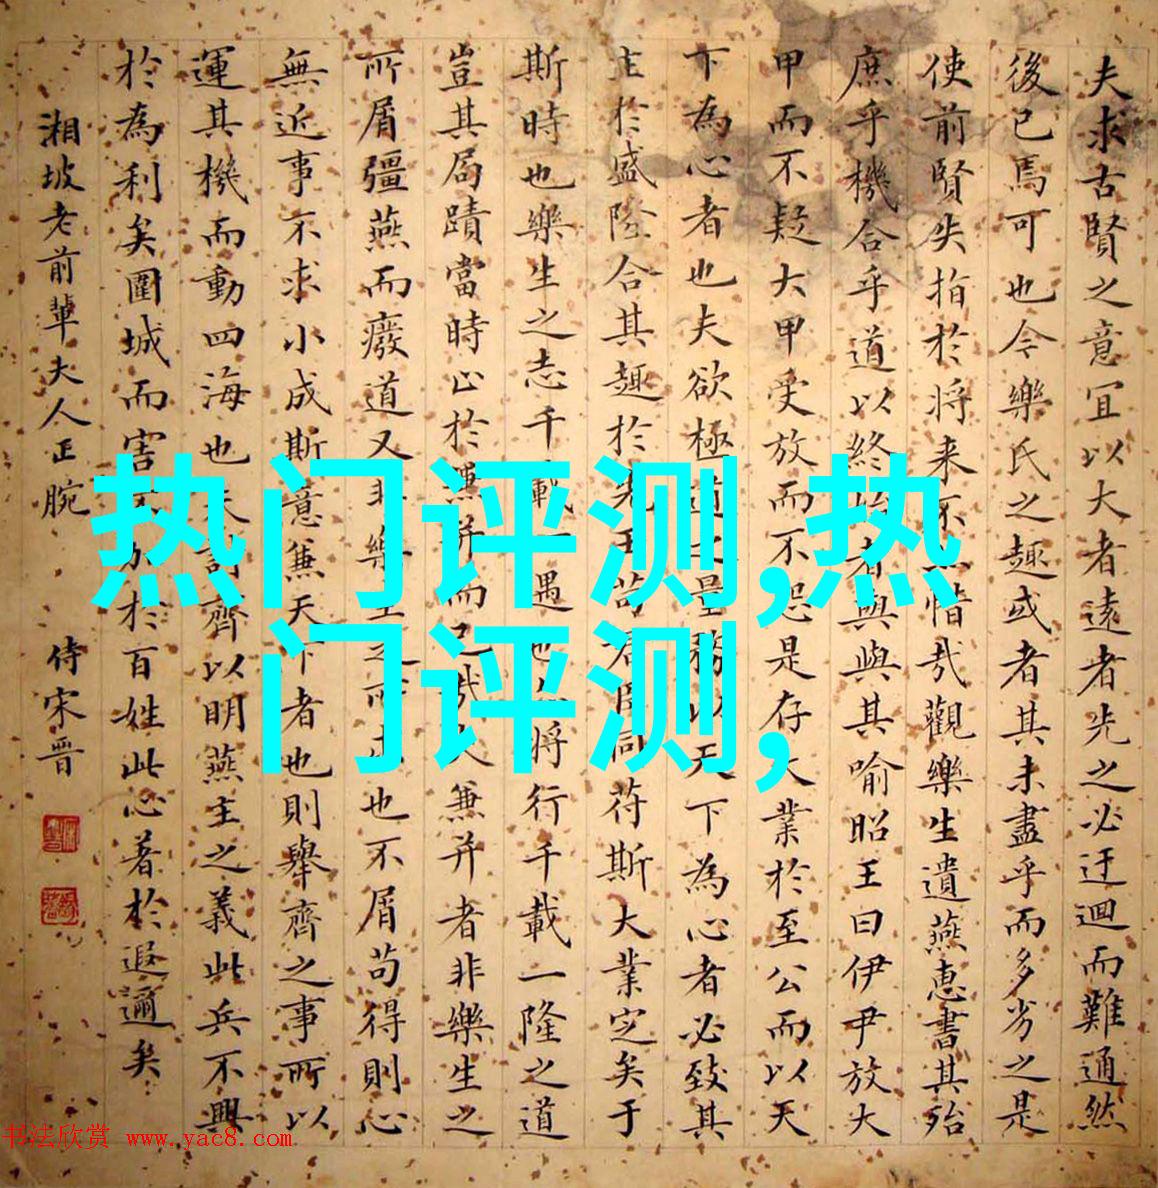 夫求古賢之意宜以大者遠者先之必迂迴而難通然
後已焉可也今樂氏之趣或者其未盡乎而多劣之是
使前賢失指於将来不亦惜哉觀樂生遺燕惠書其殆
庶乎機合乎道以終始者與與其喻昭王曰伊尹放大
甲而不疑大甲受放而不怨是存大業於至公而以天
下為心者也夫欲極道之量務以天下為心者必致其
主於盛隆合其趣於先王苟君臣同苻斯大業定矣于
斯時也樂生之志千載一遇也亦将行千載一隆之道
豈其局蹟當時止於兼并而已哉夫兼并者非樂生之
所屑彊燕而廢道又非樂生之所求也不屑苟得則心
無近事不求小成斯意兼天下者也則舉齊之事所以
運其機而動四海也夫討齊以明燕主之義此兵不興
於為利矣圍城而害不加於百姓此心著於遐邇矣
湘坡老前輩夫人正腕 侍宋晋
热门评测,热
门评测,
书法欣赏 www.yac8.com